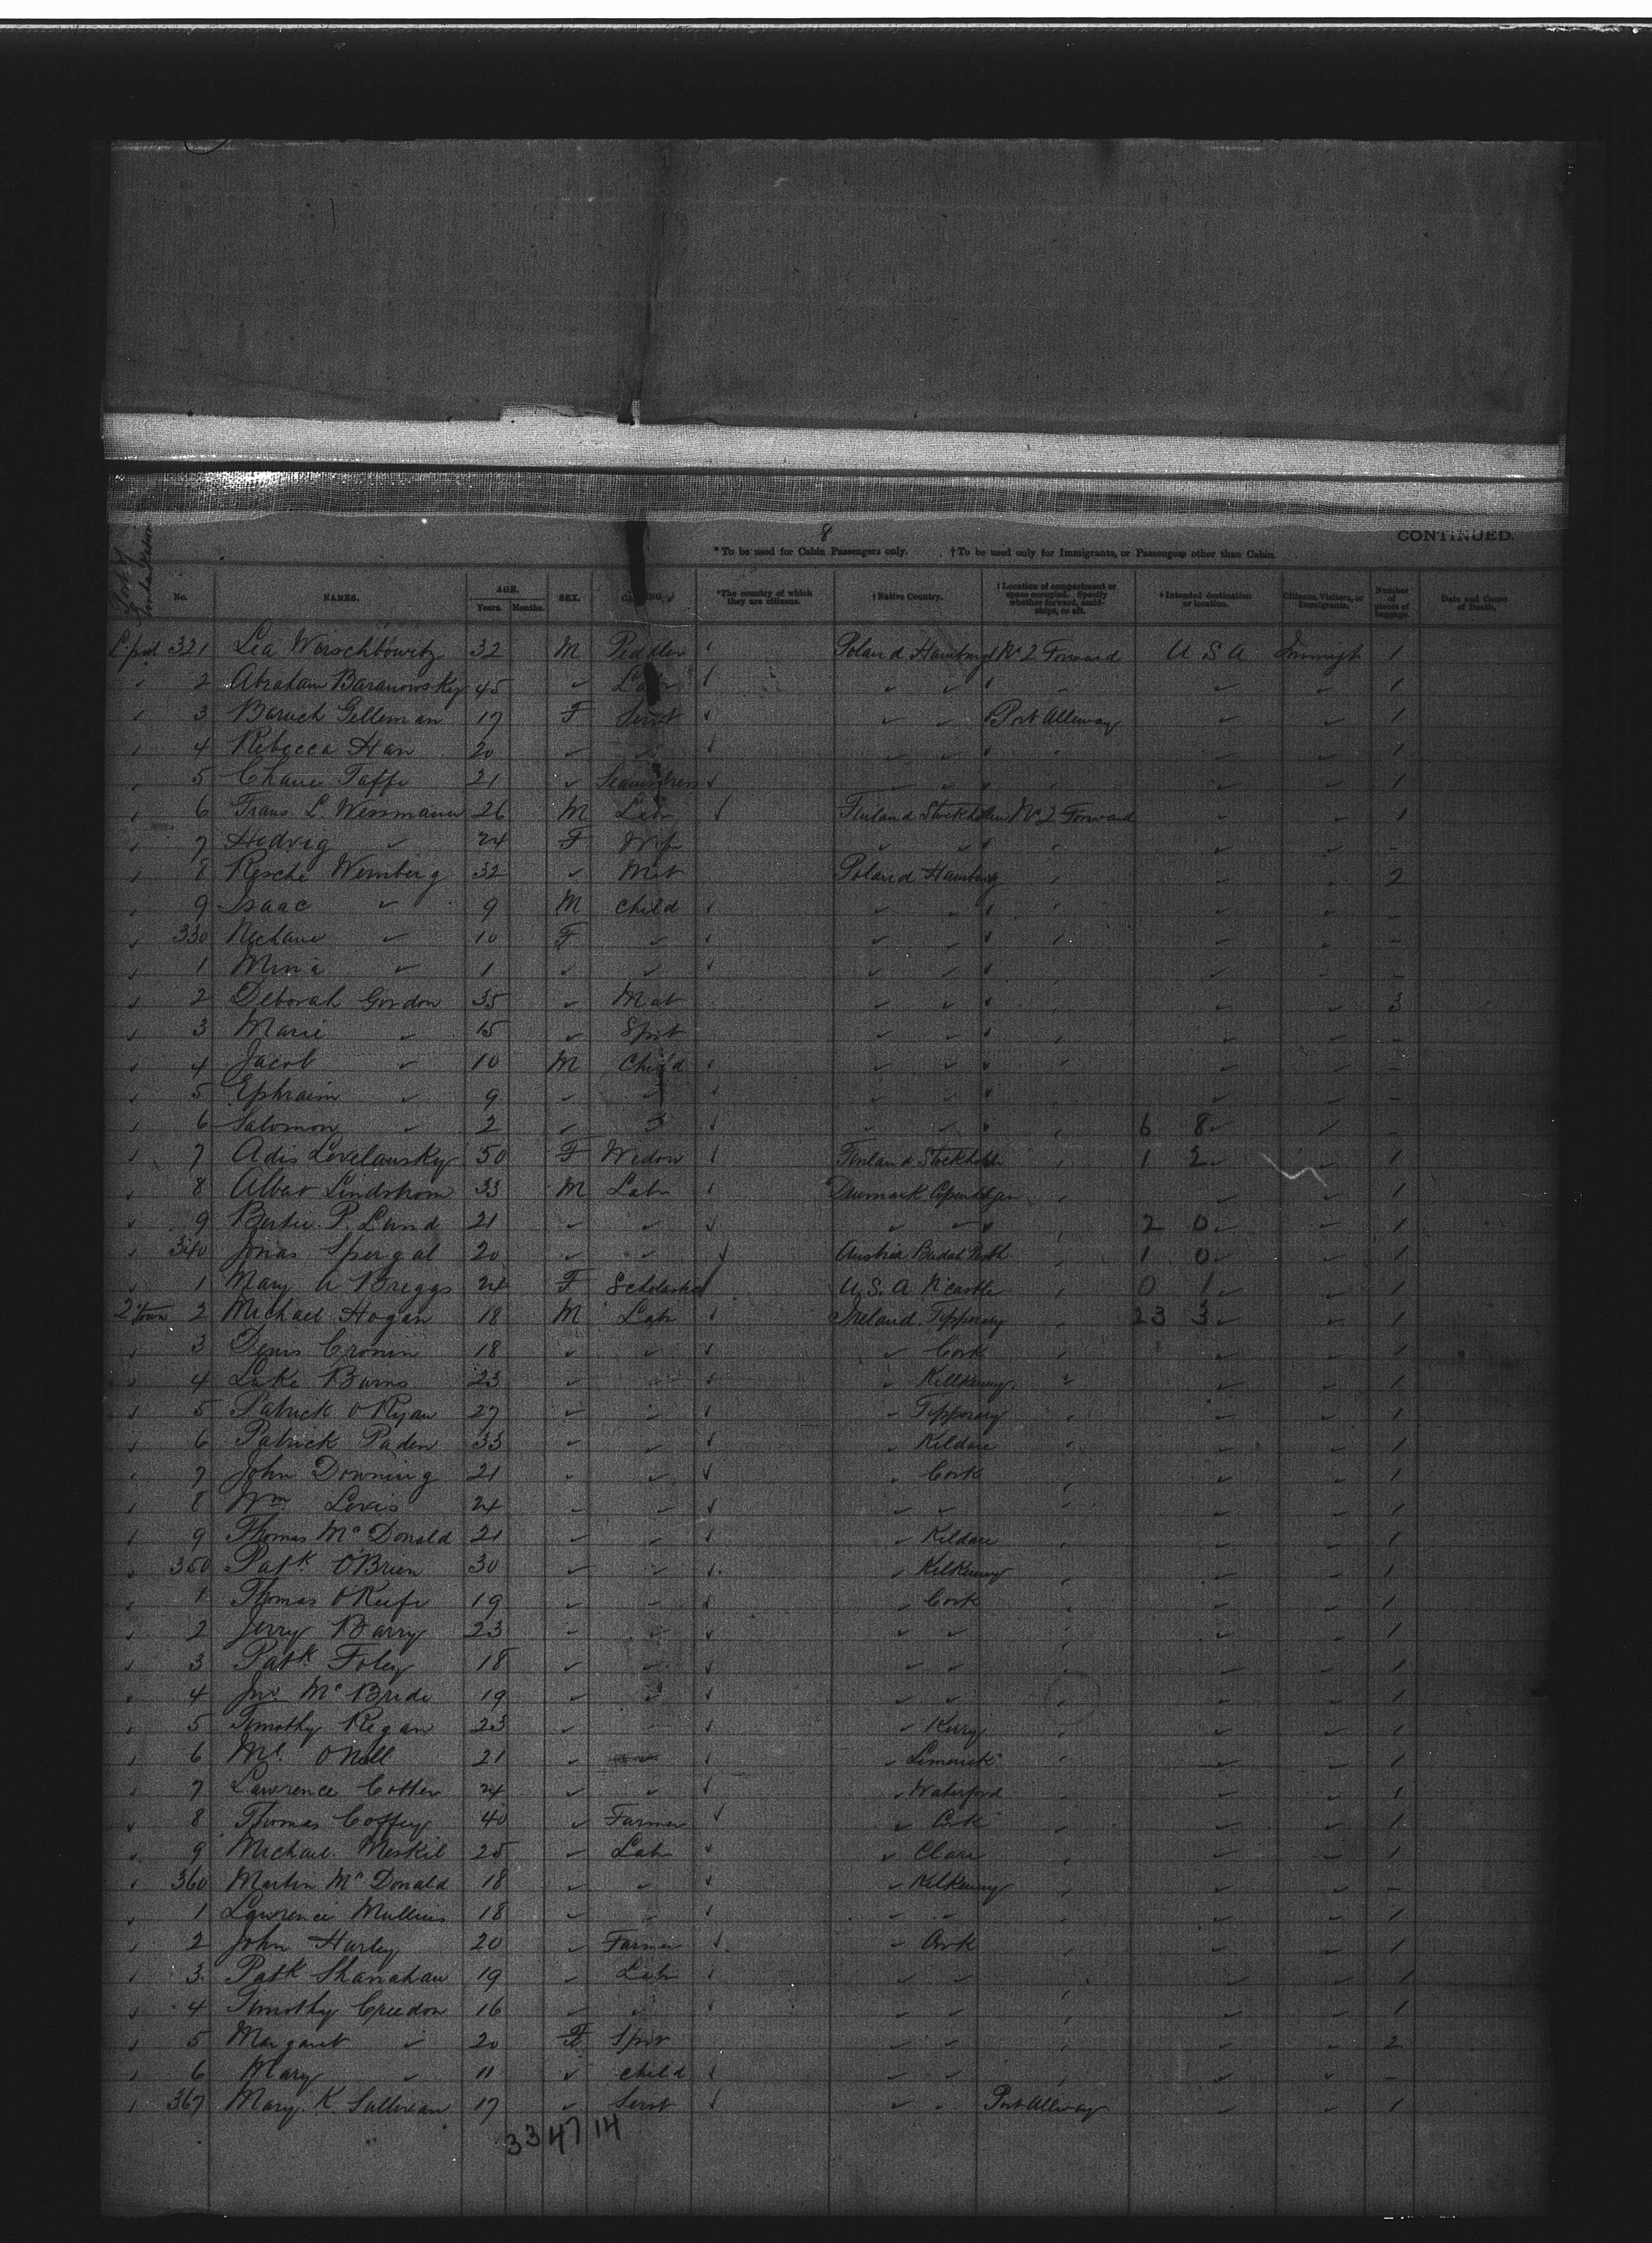 8
CONTINUED.
*To be used for Cabin Passengers only. †To be used only for Immigrants, or Passengers other than Cabin.
Port of Embarkation No. NAMES. AGE. Years. Months. SEX. CALLING. *The country of which they are citizens. †Native Country. †Location of compartment or space occupied. Specify whether forward, amidships, or aft. †Intended destination or location. Citizens, Visitors, or Immigrants. Number of pieces of baggage. Date and Cause of Death.
L'pool 321 Lea 32 M Peddler ✓ Poland Hamburg No 2 Forward U S A Immigt 1
✓ 2 Abraham Baranowsky 45 ✓ Labr ✓ ✓ ✓ ✓ ✓ 1
✓ 3 Baruch Gelleman 17 F Servt ✓ ✓ ✓ Port Alleway ✓ ✓ 1
✓ 4 Rebecca Han 20 ✓ ✓ ✓ ✓ ✓ ✓ ✓ 1
✓ 5 Chane Taffe 21 ✓ Seamstress ✓ ✓ ✓ ✓ ✓ 1
✓ 6 Frans L. Wessmann 26 M Labr ✓ Finland Stockholm No 2 Forward ✓ ✓ 1
✓ 7 Hedvig ✓ 24 F Wife ✓ ✓ ✓ ✓ –
✓ 8 Resche Weinberg 32 ✓ Mat Poland Hamburg ✓ ✓ 2
✓ 9 Isaac ✓ 9 M Child ✓ ✓ ✓ ✓ ✓ –
✓ 330 Nechane ✓ 10 F ✓ ✓ ✓ ✓ ✓ ✓ –
✓ 1 Mina ✓ 1 ✓ ✓ ✓ ✓ ✓ ✓ ✓ –
✓ 2 Deborah Gordon 35 ✓ Mat ✓ ✓ ✓ ✓ 3
✓ 3 Marie ✓ 15 ✓ Spst ✓ ✓ ✓ ✓ –
✓ 4 Jacob ✓ 10 M Child ✓ ✓ ✓ ✓ ✓ –
✓ 5 Ephraim ✓ 9 ✓ ✓ ✓ ✓ ✓ ✓ ✓ –
✓ 6 Salomon ✓ 2 ✓ ✓ ✓ ✓ 6 8 ✓ ✓ –
✓ 7 Adis 50 F Widow ✓ Finland Stockholm 1 2 ✓ ✓ 1
✓ 8 Albert Lindstrom 33 M Labr ✓ Denmark Copenhagen ✓ ✓ 1
✓ 9 P. Lund 21 ✓ ✓ ✓ ✓ ✓ 2 0 ✓ ✓ 1
✓ 340 Jonas Spergal 20 ✓ ✓ ✓ Austria Buda Pesth 1 0 ✓ ✓ 1
✓ 1 Mary A Briggs 24 F U.S.A N'castle 0 1 ✓ ✓ 1
Q'town 2 Michael Hogan 18 M Labr ✓ Ireland Tipperary 23 3 ✓ ✓ 1
✓ 3 Denis Cronin 18 ✓ ✓ ✓ ✓ Cork ✓ ✓ 1
✓ 4 Luke Burns 23 ✓ ✓ ✓ ✓ Killkenny ✓ ✓ 1
✓ 5 Patrick O'Ryan 27 ✓ ✓ ✓ ✓ Tipperary ✓ ✓ 1
✓ 6 Patrick Paden 33 ✓ ✓ ✓ ✓ Kildare ✓ ✓ 1
✓ 7 John Downing 21 ✓ ✓ ✓ ✓ Cork ✓ ✓ 1
✓ 8 Wm Levis 24 ✓ ✓ ✓ ✓ ✓ ✓ ✓ 1
✓ 9 Thomas McDonald 21 ✓ ✓ ✓ ✓ Kildare ✓ ✓ 1
✓ 350 Patk O'Brien 30 ✓ ✓ ✓ ✓ Kilkenny ✓ ✓ 1
✓ 1 Thomas O'Keefe 19 ✓ ✓ ✓ ✓ Cork ✓ ✓ 1
✓ 2 Jerry Barry 23 ✓ ✓ ✓ ✓ ✓ ✓ ✓ 1
✓ 3 Patk Foley 18 ✓ ✓ ✓ ✓ ✓ ✓ ✓ 1
✓ 4 Jno McBride 19 ✓ ✓ ✓ ✓ ✓ ✓ ✓ 1
✓ 5 Timothy Regan 23 ✓ ✓ ✓ ✓ Kerry ✓ ✓ 1
✓ 6 Ml O'Neill 21 ✓ ✓ ✓ Limerick ✓ ✓ 1
✓ 7 Lawrence Cotter 24 ✓ ✓ ✓ ✓ Waterford ✓ ✓ 1
✓ 8 Thomas Coffey 40 ✓ Farmer ✓ ✓ Cork ✓ ✓ 1
✓ 9 Michael Meskil 25 ✓ Labr ✓ ✓ Clare ✓ ✓ 1
✓ 360 Martin McDonald 18 ✓ ✓ ✓ ✓ Kilkenny ✓ ✓ –
✓ 1 Lawrence Mullins 18 ✓ ✓ ✓ ✓ ✓ ✓ ✓ 1
✓ 2 John Hurley 20 ✓ Farmer ✓ ✓ Cork ✓ ✓ 1
✓ 3 Patk Shanahan 19 ✓ Labr ✓ ✓ ✓ ✓ ✓ 1
✓ 4 Timothy Creedon 16 ✓ ✓ ✓ ✓ ✓ ✓ ✓ 1
✓ 5 Margaret ✓ 20 F Spst ✓ ✓ ✓ ✓ 2
✓ 6 Mary ✓ 11 ✓ Child ✓ ✓ ✓ ✓ ✓ –
✓ 367 Mary K. Sullivan 17 ✓ Servt ✓ ✓ ✓ Port Alleway ✓ ✓ 1
33 47 14